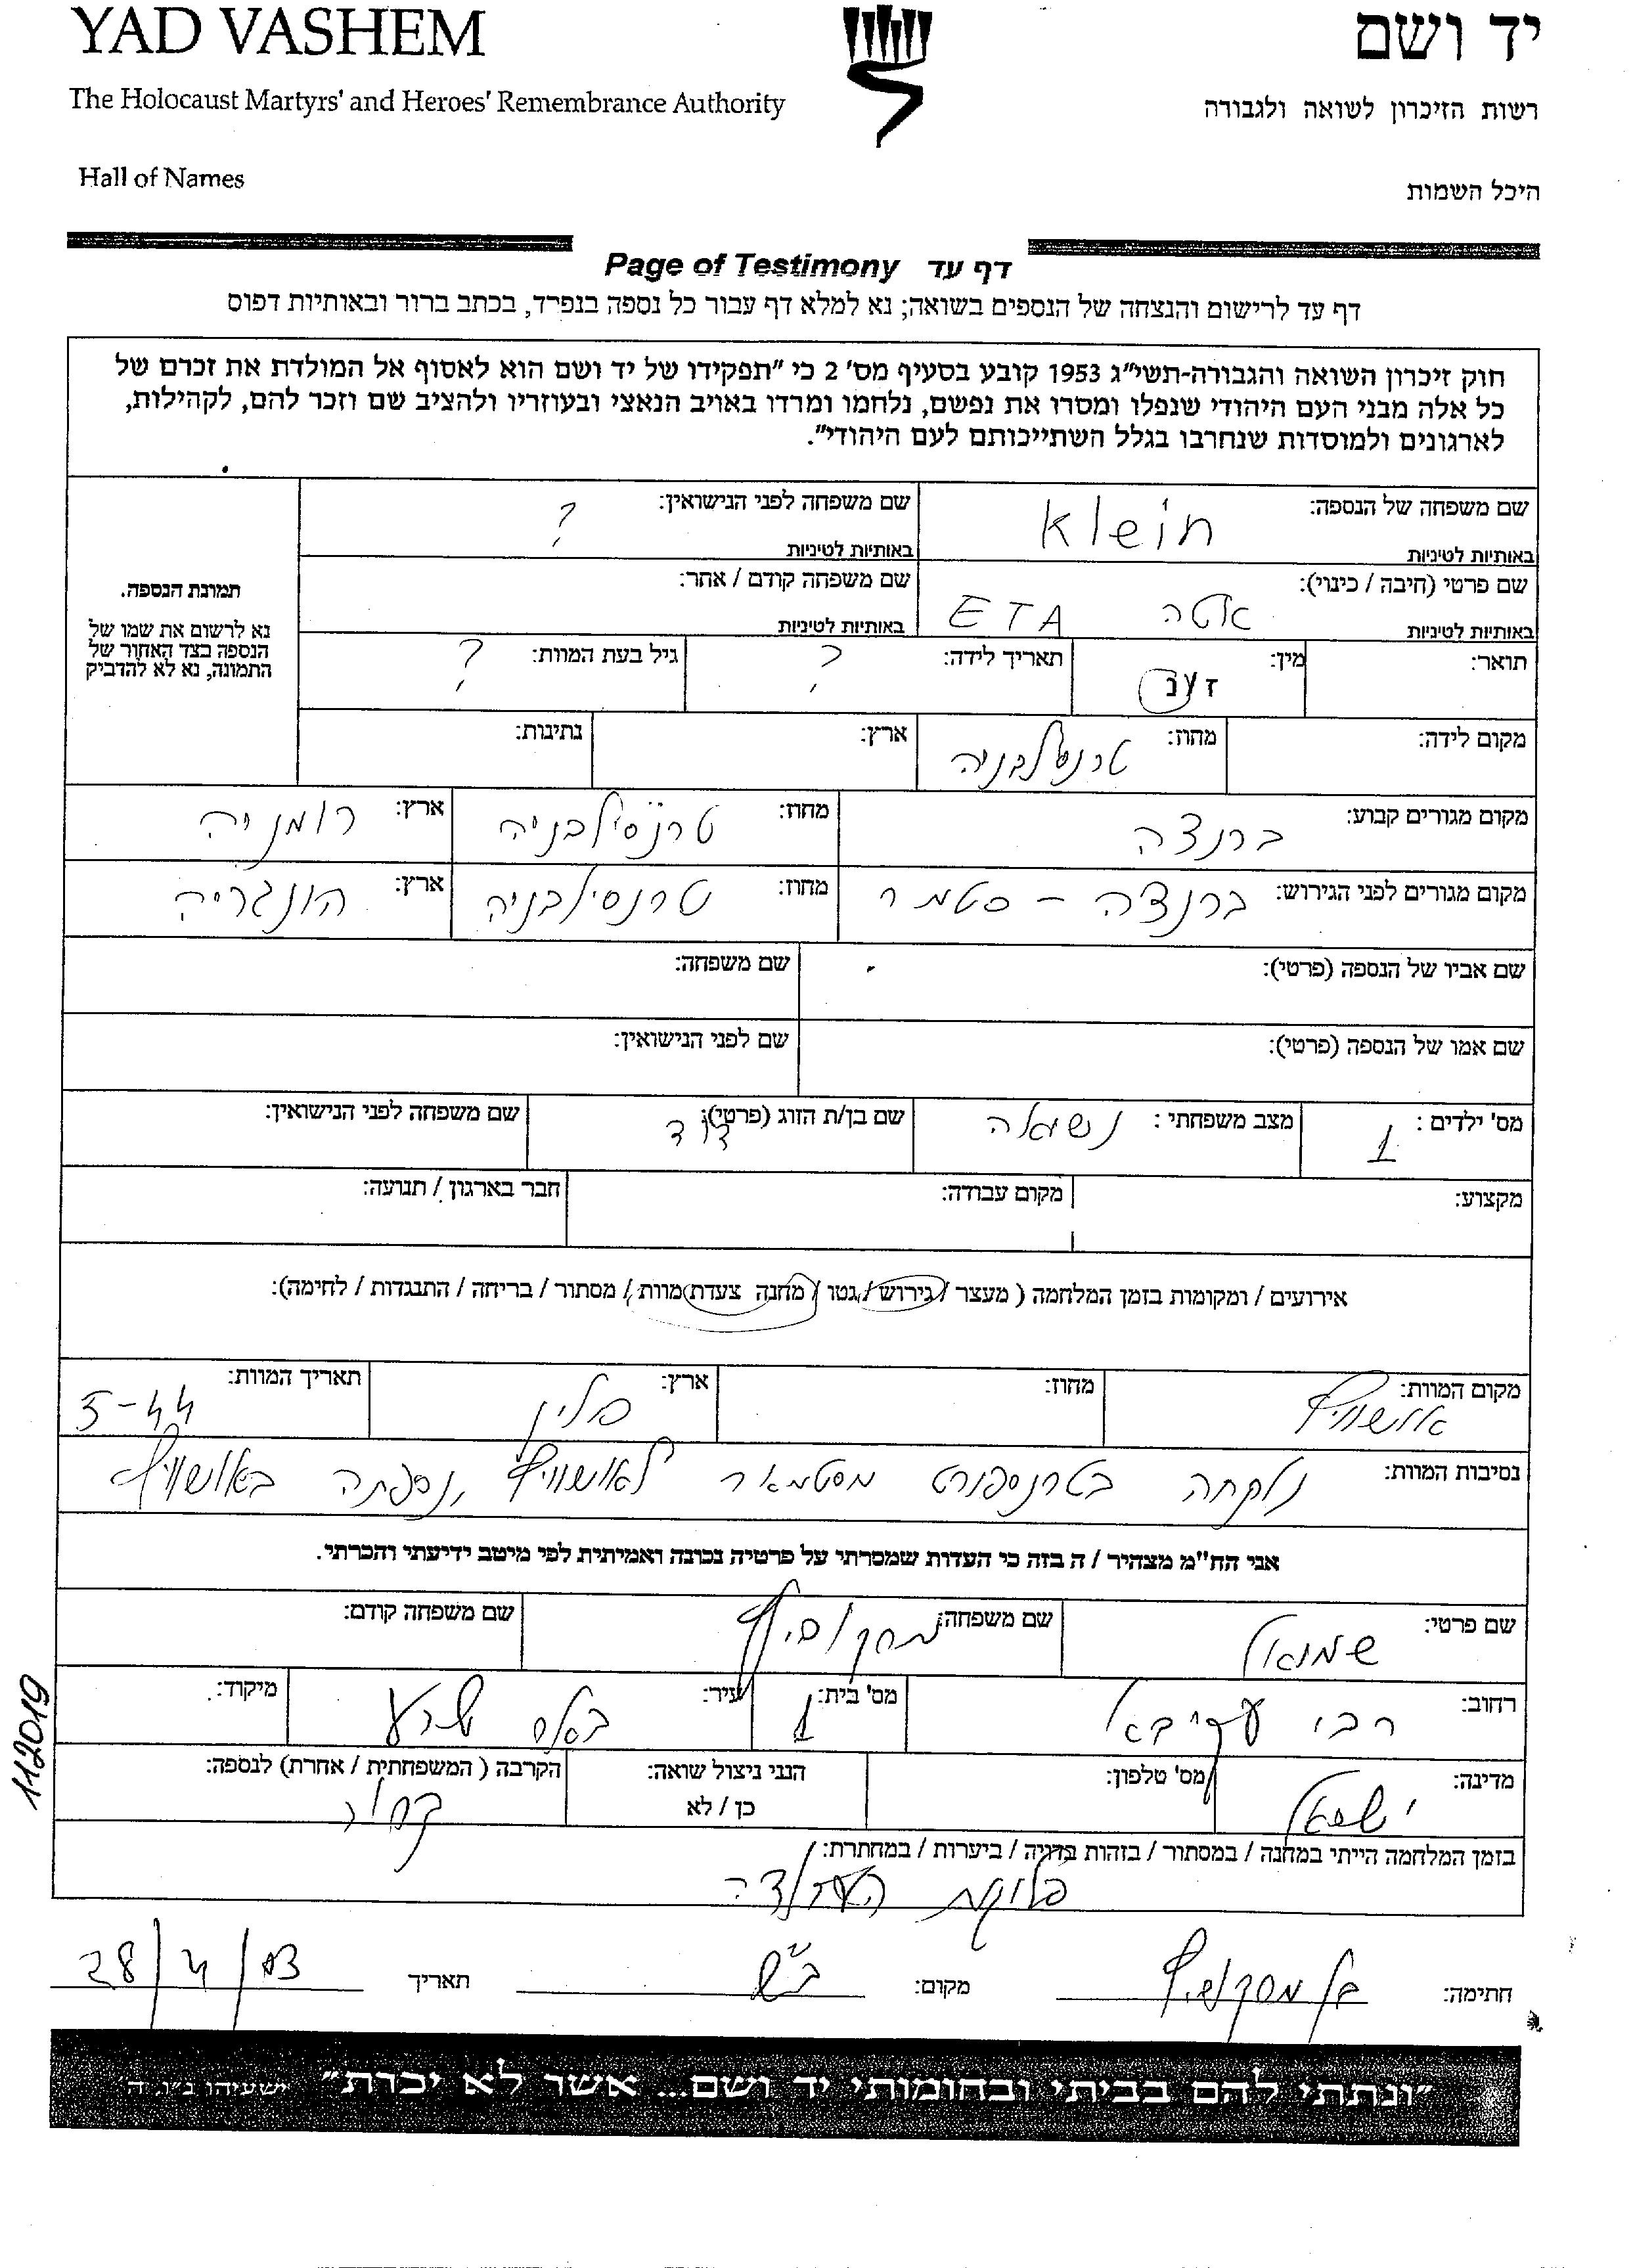 YAD VASHEM
יד ושם
The Holocaust Martyrs' and Heroes' Remembrance Authority
רשות הזיכרון לשואה ולגבורה
Hall of Names
היכל השמות
Page of Testimony דף עד
דף עד לרישום והנצחה של הנספים בשואה; נא למלא דף עבור כל נספה בנפרד, בכתב ברור ובאותיות דפוס
חוק זיכרון השואה והגבורה-תשי"ג 1953 קובע בסעיף מס' 2 כי "תפקידו של יד ושם הוא לאסוף אל המולדת את זכרם של
כל אלה מבני העם היהודי שנפלו ומסרו את נפשם, נלחמו ומרדו באויב הנאצי ובעוזריו ולהציב שם וזכר להם, לקהילות,
לארגונים ולמוסדות שנחרבו בגלל השתייכותם לעם היהודי".
שם משפחה של הנספה: Klein
באותיות לטיניות
שם משפחה לפני הנישואין: ?
באותיות לטיניות
שם פרטי (חיבה / כינוי): אטה ETA
באותיות לטיניות
שם משפחה קודם / אחר:
באותיות לטיניות
תמונת הנספה.
נא לרשום את שמו של
הנספה בצד האחור של
התמונה, נא לא להדביק
תואר:
מין: ז / נ
תאריך לידה: ?
גיל בעת המוות: ?
מקום לידה:
מחוז: טרנסילבניה
ארץ:
נתינות:
מקום מגורים קבוע: ברנצה
מחוז: טרנסילבניה
ארץ: רומניה
מקום מגורים לפני הגירוש: ברנצה - סטמר
מחוז: טרנסילבניה
ארץ: הונגריה
שם אביו של הנספה (פרטי):
שם משפחה:
שם אמו של הנספה (פרטי):
שם לפני הנישואין:
מס' ילדים: 1
מצב משפחתי: נשואה
שם בן/ת הזוג (פרטי): דוד
שם משפחה לפני הנישואין:
מקצוע:
מקום עבודה:
חבר בארגון / תנועה:
אירועים / ומקומות בזמן המלחמה ( מעצר / גירוש / גטו / מחנה צעדת מוות / מסתור / בריחה / התנגדות / לחימה):
מקום המוות: אושוויץ
מחוז:
ארץ: פולין
תאריך המוות: 5-44
נסיבות המוות: נלקחה בטרנספורט מסטמאר לאושוויץ ונספתה באושוויץ
אני הח"מ מצהיר / ה בזה כי העדות שמסרתי על פרטיה נכונה ואמיתית לפי מיטב ידיעתי והכרתי.
שם פרטי: שמואל
שם משפחה:
שם משפחה קודם:
רחוב: רבי עקיבא
מס' בית: 1
עיר: באר שבע
מיקוד:
מדינה: ישראל
מס' טלפון:
הנני ניצול שואה:
כן / לא
הקרבה ( המשפחתית / אחרת) לנספה:
בזמן המלחמה הייתי במחנה / במסתור / בזהות בדויה / ביערות / במחתרת:
פלוגות העבודה
112019
חתימה:
מקום: ב"ש
תאריך 28/4/03
"ונתתי להם בביתי ובחומותי יד ושם... אשר לא יכרת" ישעיהו נ"ו ה'